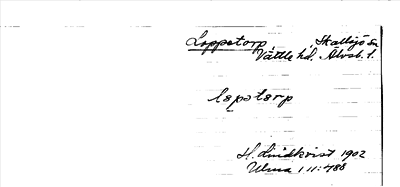 Loppetorp Skallsjö sn
Vättle hd. Älvsb. l.
lɵpətɵrp
H. Lindkvist 1902
Ulma 111:488